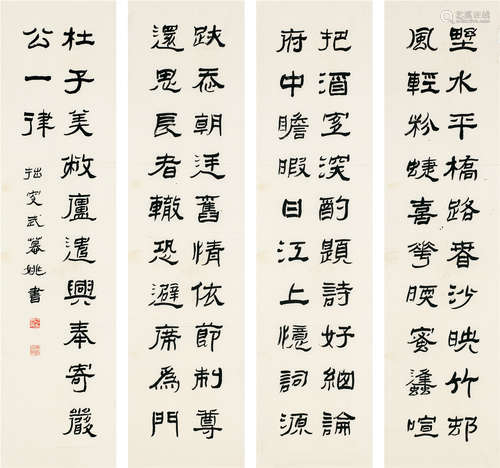 墅水平橋路春沙映竹邨
風輕粉蜨喜華暖蜜蠭喧
把酒宜深酌題詩好細論
府中瞻暇日江上憶詞源
跡忝朝廷舊情依節制尊
還思長者轍恐避席為門
杜子美敝廬遣興奉寄嚴
公一律
拙叟武慕姚書